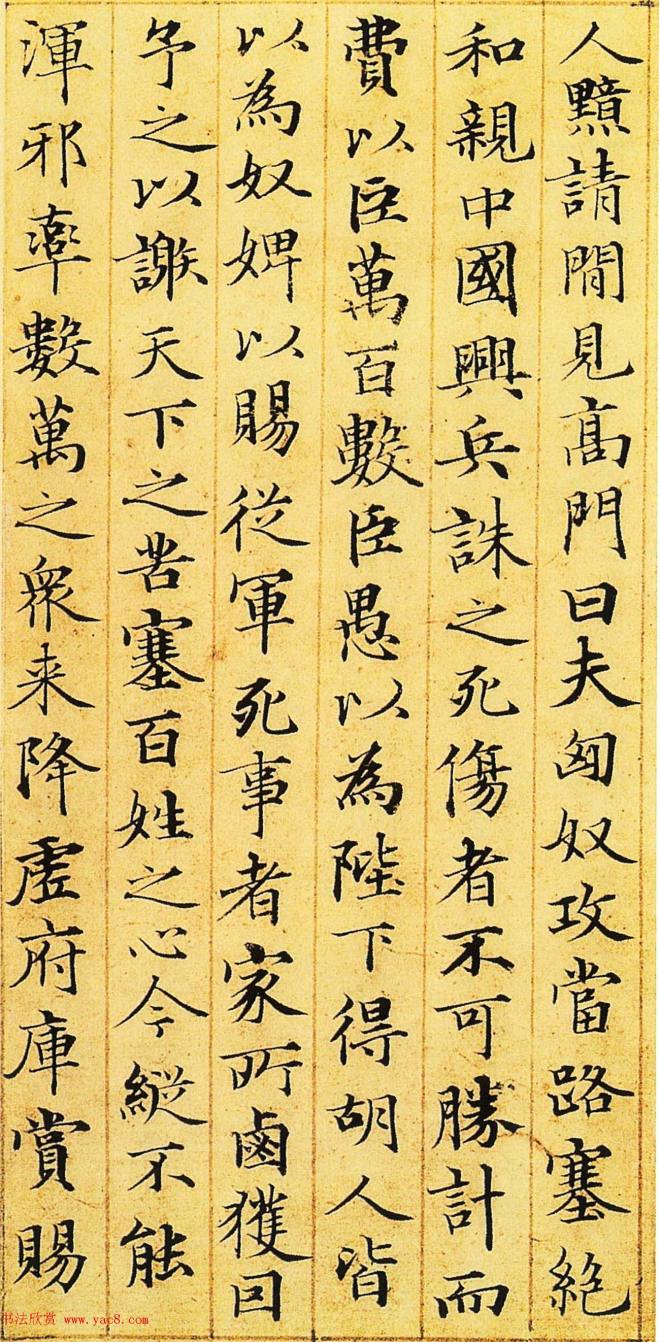 人黯請閒見高門曰夫匈奴攻當路塞絶
和親中國興兵誅之死傷者不可勝計而
費以臣萬百數臣愚以為陛下得胡人皆
以為奴婢以賜從軍死事者家所鹵獲回
予之以謝天下之苦塞百姓之心今縱不能
渾邪率數萬之衆来降虛府庫賞賜
书法欣赏 www.yac8.com